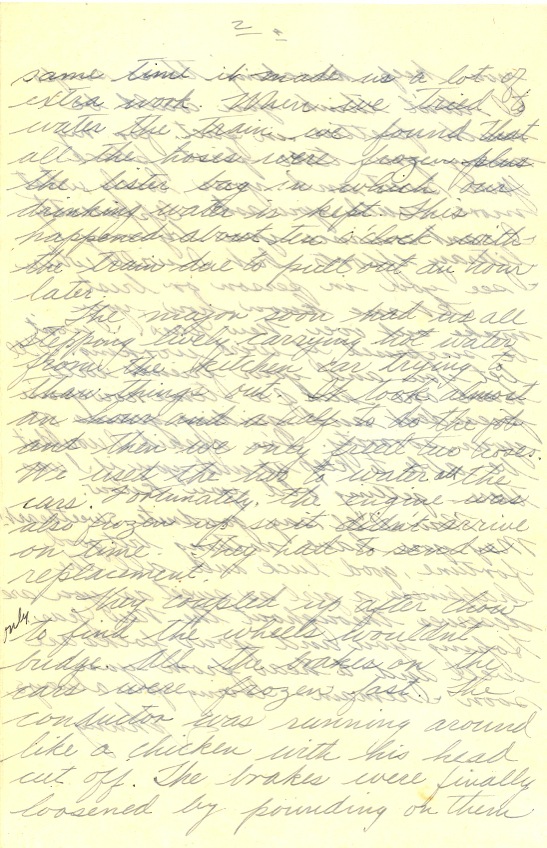 2.
same time it made us a lot of
extra work. When we tried to
water the train we found that
all the hoses were frozen plus
the lister bag in which our
drinking water is kept. This
happened about ten o'clock with
the train due to pull out an hour
later.
The major soon had us all
stepping lively carrying hot water
from the kitchen car trying to
thaw things out. It took almost
an hour and a half to do the job
and then we only freed two hoses.
We used the two to water all the
cars. Fortunately, the engine was
also frozen up so it didn't arrive
on time. They had to send a
replacement.
They coupled up after chow
only to find the wheels wouldn't
budge. All the brakes on the
cars were frozen fast. The
conductor was running around
like a chicken with his head
cut off. The brakes were finally
loosened by pounding on them